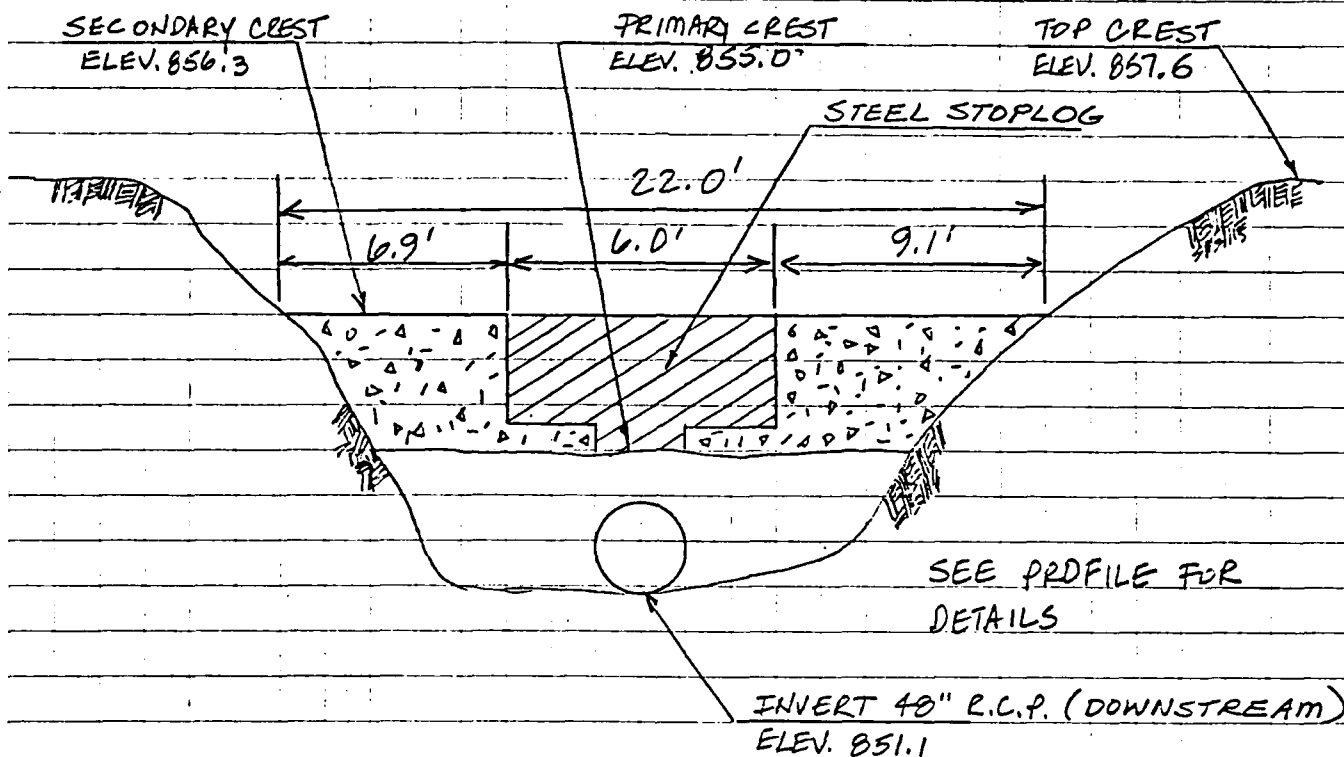 SECONDARY CREST
ELEV. 856.3
PRIMARY CREST
ELEV. 855.0'
TOP CREST
ELEV. 857.6
STEEL STOPLOG
22.0'
6.9'
6.0'
9.1'
SEE PROFILE FOR
DETAILS
INVERT 48" R.C.P. (DOWNSTREAM)
ELEV. 851.1